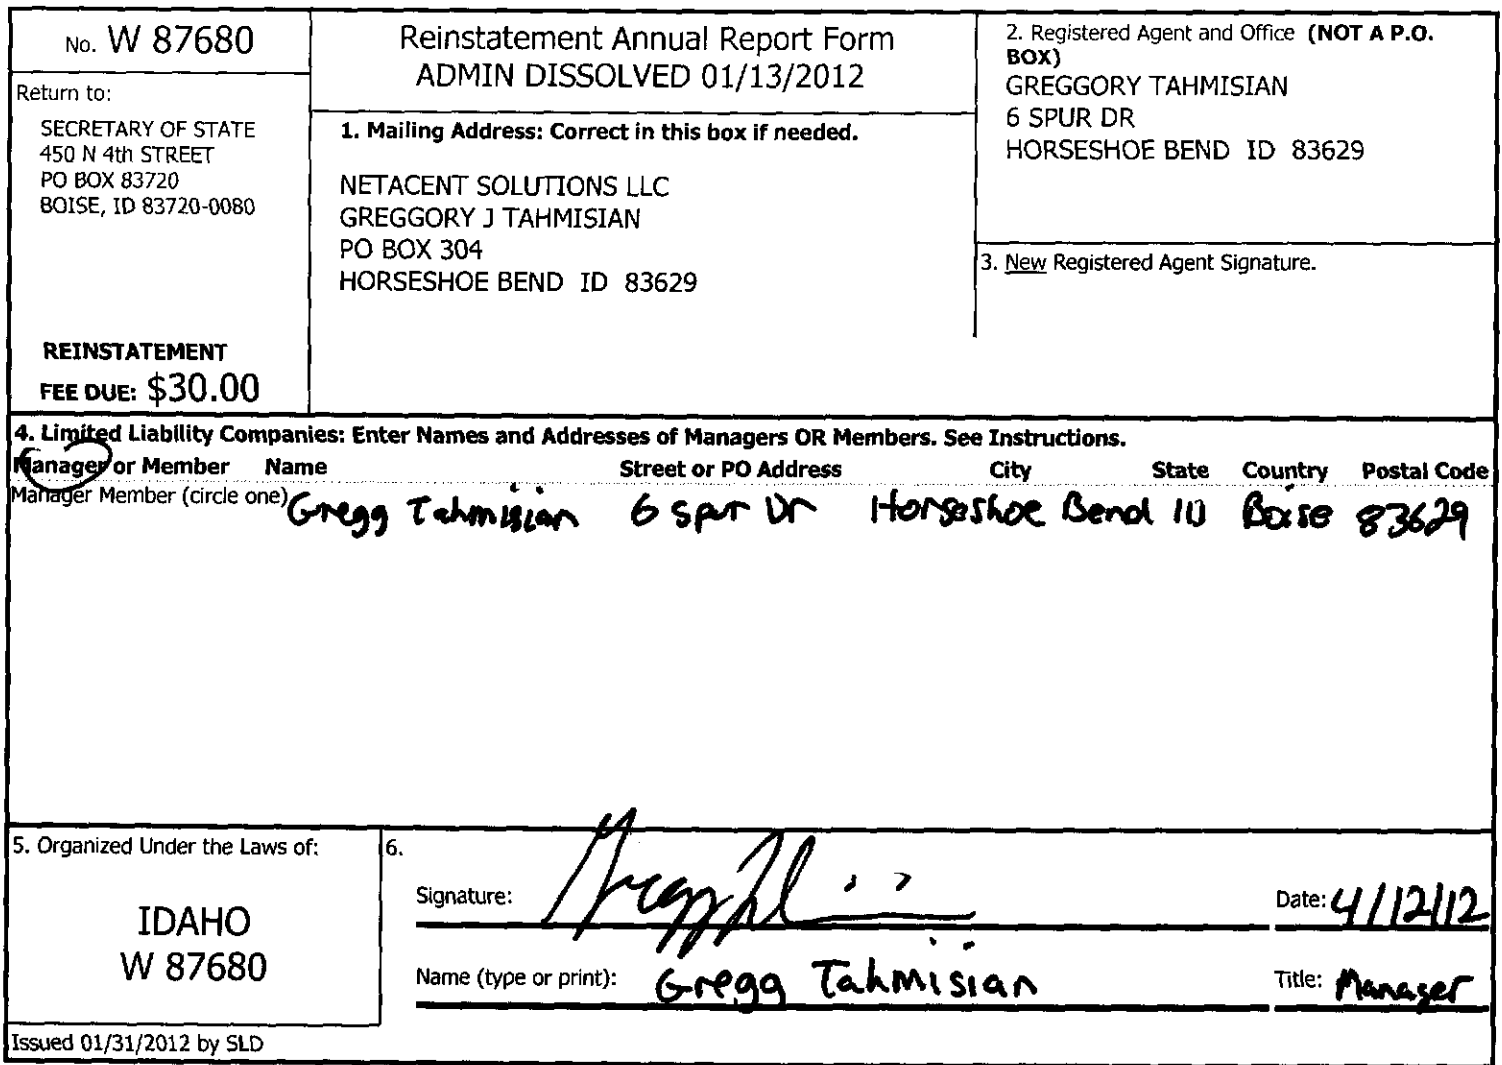 No. W 87680
Return to:
SECRETARY OF STATE
450 N 4th STREET
PO BOX 83720
BOISE, ID 83720-0080
REINSTATEMENT
FEE DUE: $30.00
Reinstatement Annual Report Form
ADMIN DISSOLVED 01/13/2012
1. Mailing Address: Correct in this box if needed.
NETACENT SOLUTIONS LLC
GREGGORY J TAHMISIAN
PO BOX 304
HORSESHOE BEND ID 83629
2. Registered Agent and Office (NOT A P.O.
BOX)
GREGGORY TAHMISIAN
6 SPUR DR
HORSESHOE BEND ID 83629
3. New Registered Agent Signature.
4. Limited Liability Companies: Enter Names and Addresses of Managers OR Members. See Instructions.
Manager or Member Name Street or PO Address City State Country Postal Code
Manager Member (circle one) Gregg Tahmisian 6 Spur Dr Horseshoe Bend ID Boise 83629
5. Organized Under the Laws of:
IDAHO
W 87680
6.
Signature: Gregg Date: 4/12/12
Name (type or print): Gregg Tahmisian Title: Manager
Issued 01/31/2012 by SLD